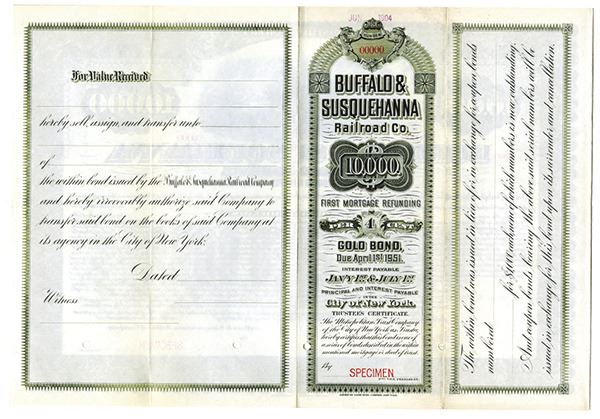 For Value Received
hereby sell, assign, and transfer unto
of
the within bond issued by the Buffalo & Susquehanna Railroad Company
and hereby irrevocably authorize said Company to
transfer said bond on the books of said Company at
its agency in the City of New York.
Dated
Witness
JUN 1904
00000
BUFFALO &
SUSQUEHANNA
Railroad Co.
10,000
FIRST MORTGAGE REFUNDING
PER 4 CENT.
GOLD BOND,
Due April 1st 1951.
INTEREST PAYABLE
JAN'Y 1st & JULY 1st
PRINCIPAL AND INTEREST PAYABLE
IN THE
City of New York.
TRUSTEE'S CERTIFICATE.
The Metropolitan Trust Company
of the City of New York as Trustee,
hereby certifies that this bond is one of
a series of bonds described in the within
mentioned mortgage or deed of trust.
By
SPECIMEN
The within bond was issued in lieu of or in exchange for coupon bonds
numbered
for $1,000 each none of which numbers is now outstanding.
And coupon bonds bearing the above said serial numbers will be
issued in exchange for this bond upon its surrender and cancellation.